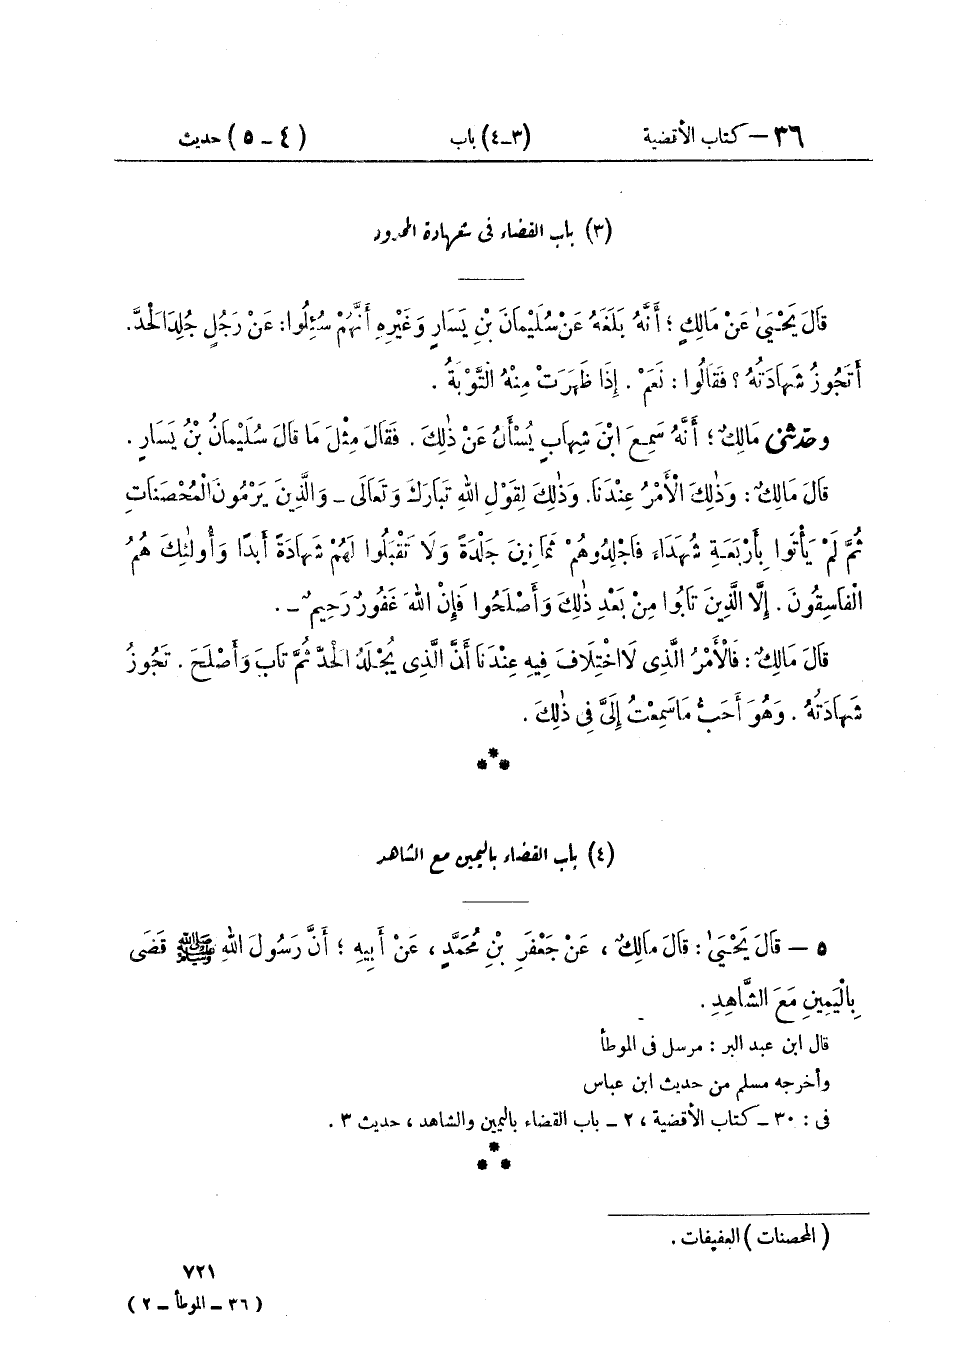 ٣٦ — كتاب الأقضية (٣ـ٤) باب (٤ ـ ٥) حديث
(٣) باب القضاء فى شهادة المحدود
قَالَ يَحْيَىٰ عَنْ مَالِكٍ ؛ أَنَّهُ بَلَغَهُ عَنْ سُلَيْمَانَ بْنِ يَسَارٍ وَغَيْرِهِ أَنَّهُمْ سُئِلُوا: عَنْ رَجُلٍ جُلِدَ الْحَدَّ.
أَتَجُوزُ شَهَادَتُهُ ؟ فَقَالُوا : نَعَمْ . إِذَا ظَهَرَتْ مِنْهُ التَّوْبَةُ .
وحدثنى مَالِكٌ ؛ أَنَّهُ سَمِعَ ابْنَ شِهَابٍ يُسْأَلُ عَنْ ذٰلِكَ . فَقَالَ مِثْلَ مَا قَالَ سُلَيْمَانُ بْنُ يَسَارٍ .
قَالَ مَالِكٌ : وَذٰلِكَ الْأَمْرُ عِنْدَنَا. وَذٰلِكَ لِقَوْلِ اللهِ تَبَارَكَ وَتَعَالَى ـ وَالَّذِينَ يَرْمُونَ الْمُحْصَنَاتِ
ثُمَّ لَمْ يَأْتُوا بِأَرْبَعَةِ شُهَدَاءَ فَاجْلِدُوهُمْ ثَمَانِينَ جَلْدَةً وَلَا تَقْبَلُوا لَهُمْ شَهَادَةً أَبَدًا وَأُولٰئِكَ هُمُ
الْفَاسِقُونَ . إِلَّا الَّذِينَ تَابُوا مِنْ بَعْدِ ذٰلِكَ وَأَصْلَحُوا فَإِنَّ اللهَ غَفُورٌ رَحِيمٌ ـ .
قَالَ مَالِكٌ : فَالْأَمْرُ الَّذِى لَا اخْتِلَافَ فِيهِ عِنْدَنَا أَنَّ الَّذِى يُجْلَدُ الْحَدَّ ثُمَّ تَابَ وَأَصْلَحَ . تَجُوزُ
شَهَادَتُهُ . وَهُوَ أَحَبُّ مَا سَمِعْتُ إِلَىَّ فِى ذٰلِكَ .
***
(٤) باب القضاء باليمين مع الشاهد
٥ — قَالَ يَحْيَىٰ : قَالَ مَالِكٌ ، عَنْ جَعْفَرِ بْنِ مُحَمَّدٍ ، عَنْ أَبِيهِ ؛ أَنَّ رَسُولَ اللهِ ﷺ قَضَى
بِالْيَمِينِ مَعَ الشَّاهِدِ .
قال ابن عبد البر : مرسل فى الموطأ
وأخرجه مسلم من حديث ابن عباس
فى : ٣٠ ـ كتاب الأقضية ، ٢ ـ باب القضاء باليمين والشاهد ، حديث ٣ .
***
( المحصنات ) العفيفات .
٧٢١
( ٣٦ ـ الموطأ ـ ٢ )